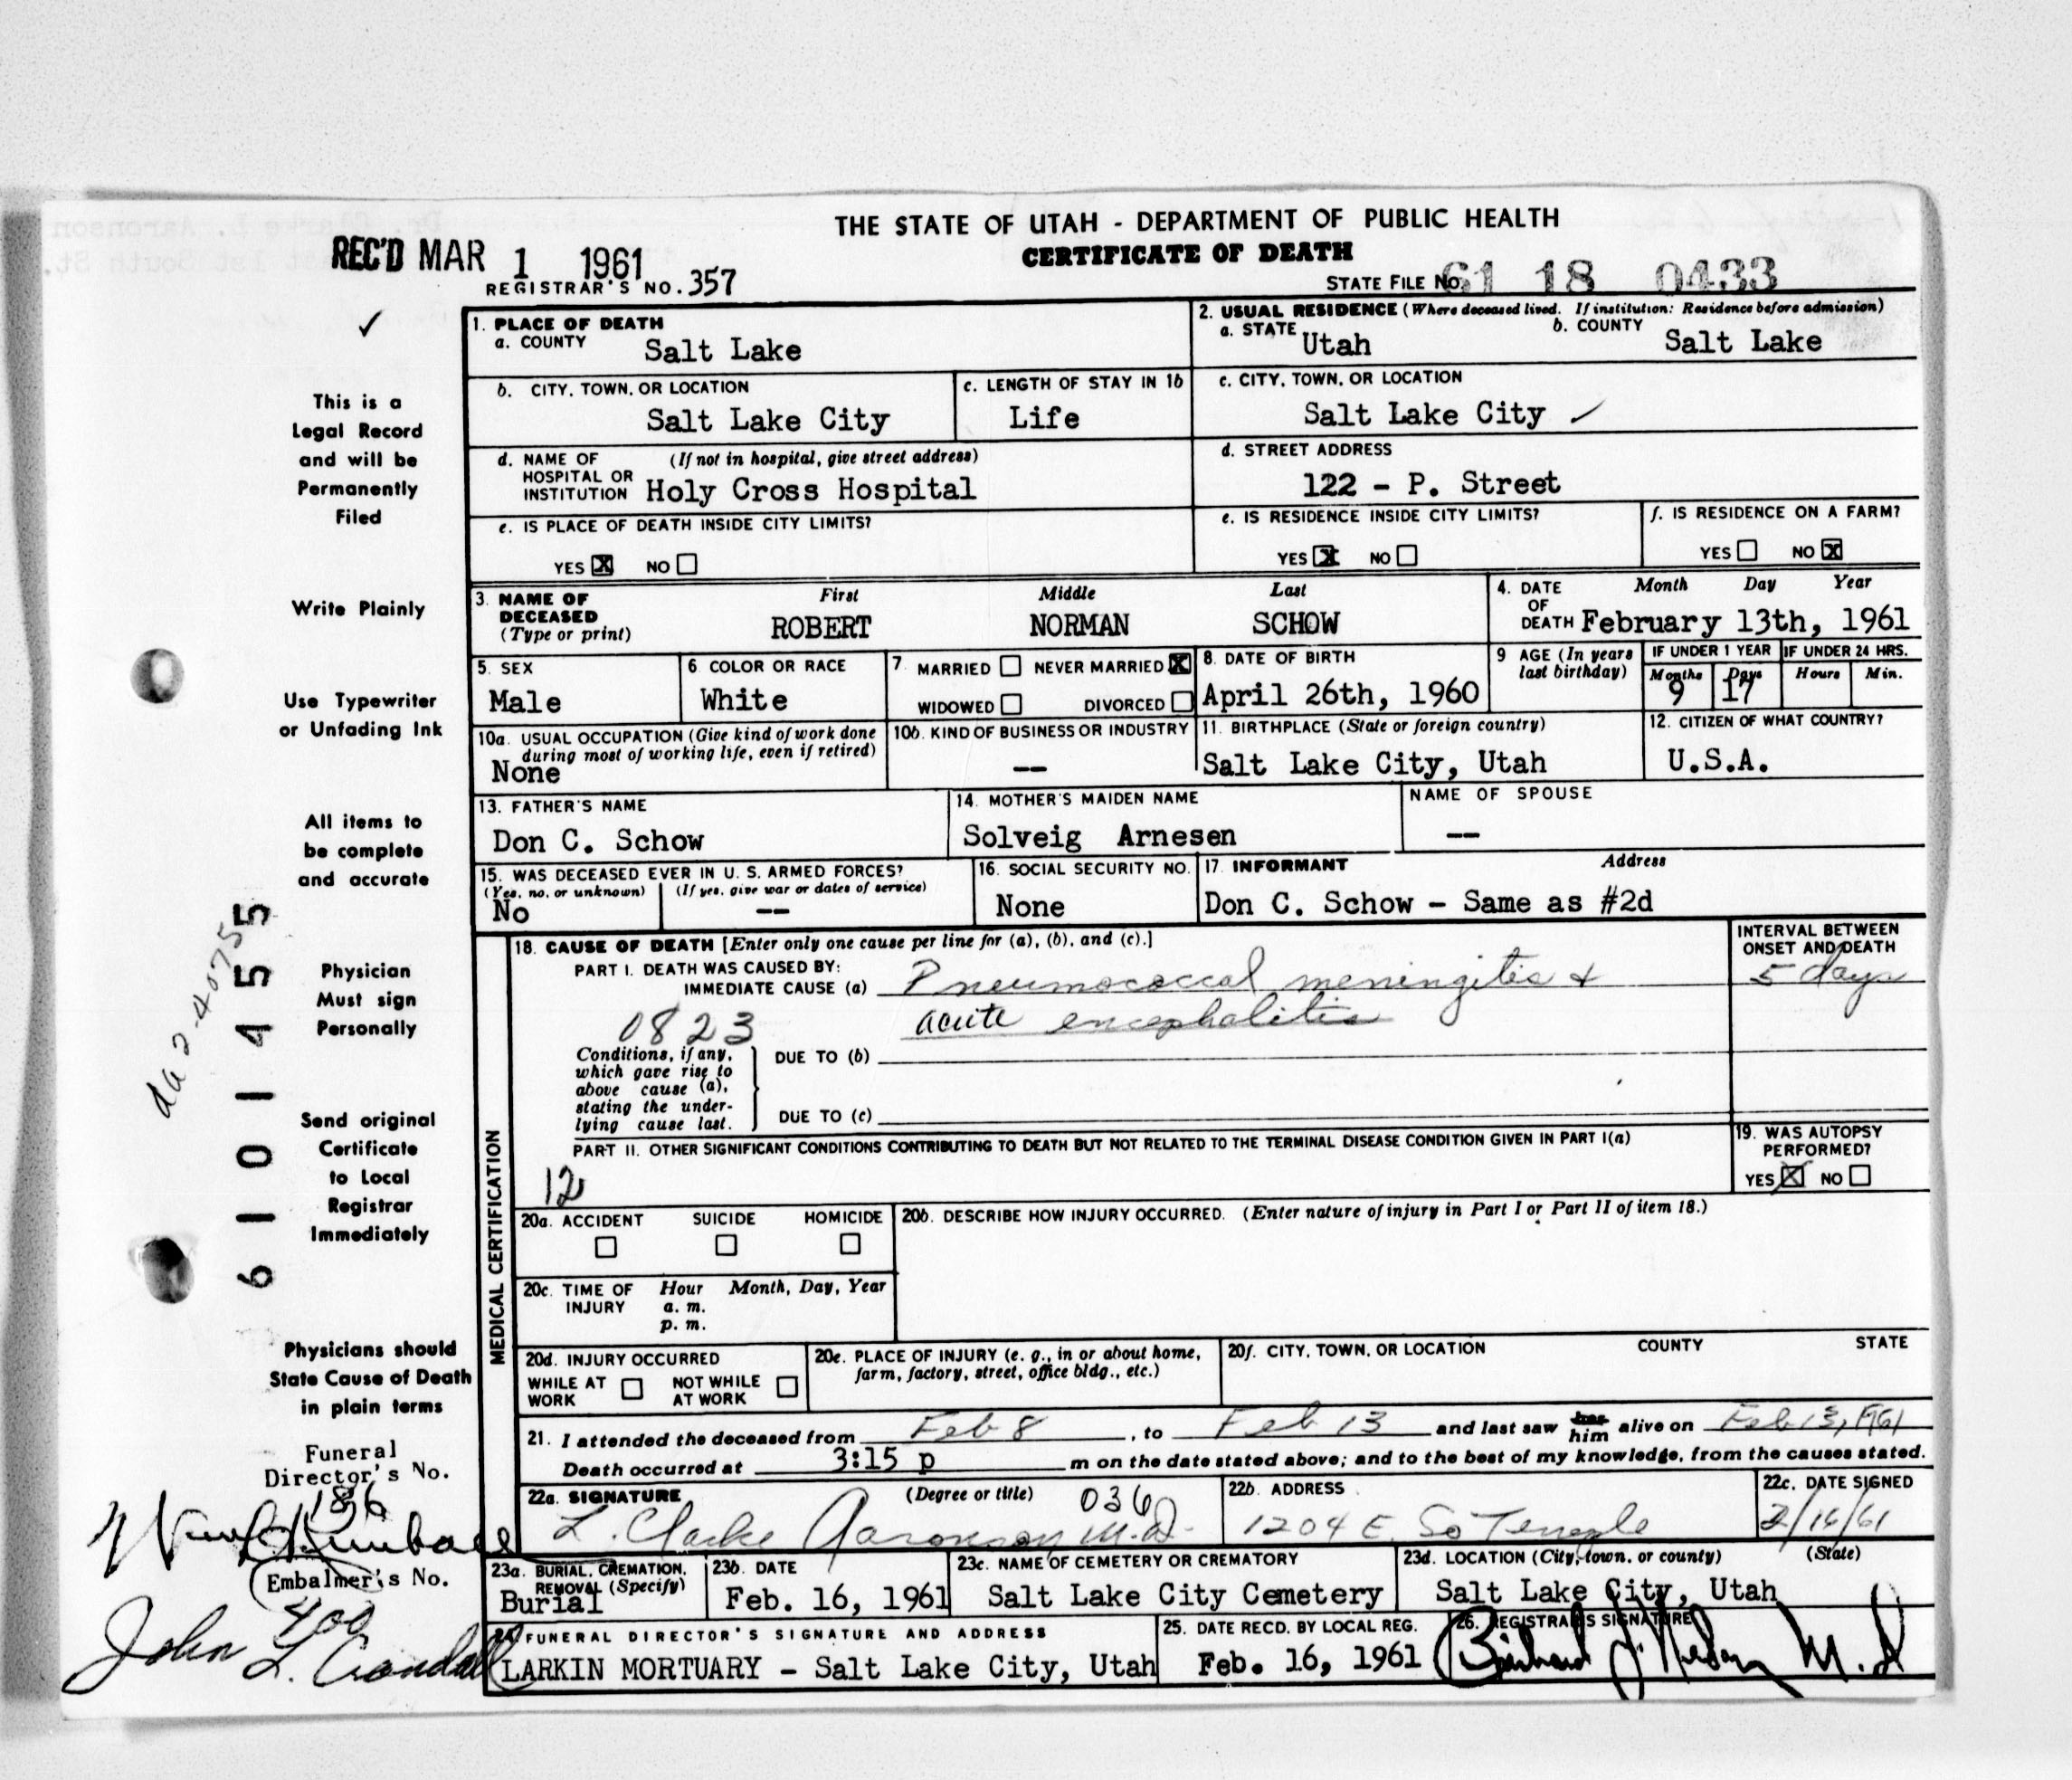 THE STATE OF UTAH - DEPARTMENT OF PUBLIC HEALTH
CERTIFICATE OF DEATH
REC'D MAR 1 1961
REGISTRAR'S NO. 357
STATE FILE No. 61 18 0433
✓
This is a
Legal Record
and will be
Permanently
Filed
Write Plainly
Use Typewriter
or Unfading Ink
All items to
be complete
and accurate
Physician
Must sign
Personally
Send original
Certificate
to Local
Registrar
Immediately
Physicians should
State Cause of Death
in plain terms
Funeral
Director's No.
186
Embalmer's No.
400
John L. Crandall
6 10 1455
1. PLACE OF DEATH
a. COUNTY Salt Lake
2. USUAL RESIDENCE (Where deceased lived. If institution: Residence before admission)
a. STATE Utah b. COUNTY Salt Lake
b. CITY, TOWN, OR LOCATION Salt Lake City
c. LENGTH OF STAY IN 1b Life
c. CITY, TOWN, OR LOCATION
Salt Lake City ✓
d. NAME OF HOSPITAL OR INSTITUTION (If not in hospital, give street address)
Holy Cross Hospital
d. STREET ADDRESS
122 - P. Street
e. IS PLACE OF DEATH INSIDE CITY LIMITS?
YES X NO
e. IS RESIDENCE INSIDE CITY LIMITS?
YES X NO
f. IS RESIDENCE ON A FARM?
YES NO X
3. NAME OF DECEASED (Type or print)
First Middle Last
ROBERT NORMAN SCHOW
4. DATE OF DEATH Month Day Year
February 13th, 1961
5. SEX
Male
6. COLOR OR RACE
White
7. MARRIED NEVER MARRIED X
WIDOWED DIVORCED
8. DATE OF BIRTH
April 26th, 1960
9 AGE (In years last birthday)
IF UNDER 1 YEAR IF UNDER 24 HRS.
Months Days Hours Min.
9 17
10a. USUAL OCCUPATION (Give kind of work done during most of working life, even if retired)
None
10b. KIND OF BUSINESS OR INDUSTRY
--
11. BIRTHPLACE (State or foreign country)
Salt Lake City, Utah
12. CITIZEN OF WHAT COUNTRY?
U.S.A.
13. FATHER'S NAME
Don C. Schow
14. MOTHER'S MAIDEN NAME
Solveig Arnesen
NAME OF SPOUSE
--
15. WAS DECEASED EVER IN U. S. ARMED FORCES?
(Yes, no, or unknown) (If yes, give war or dates of service)
No --
16. SOCIAL SECURITY NO.
None
17. INFORMANT Address
Don C. Schow - Same as #2d
MEDICAL CERTIFICATION
18. CAUSE OF DEATH [Enter only one cause per line for (a), (b), and (c).]
INTERVAL BETWEEN ONSET AND DEATH
PART I. DEATH WAS CAUSED BY:
IMMEDIATE CAUSE (a) Pneumococcal meningitis + 5 days
0823 acute encephalitis
Conditions, if any, which gave rise to above cause (a), stating the underlying cause last.
DUE TO (b)
DUE TO (c)
PART II. OTHER SIGNIFICANT CONDITIONS CONTRIBUTING TO DEATH BUT NOT RELATED TO THE TERMINAL DISEASE CONDITION GIVEN IN PART I(a)
12
19. WAS AUTOPSY PERFORMED?
YES X NO
20a. ACCIDENT SUICIDE HOMICIDE
20b. DESCRIBE HOW INJURY OCCURRED. (Enter nature of injury in Part I or Part II of item 18.)
20c. TIME OF INJURY Hour Month, Day, Year
a. m.
p. m.
20d. INJURY OCCURRED
WHILE AT WORK NOT WHILE AT WORK
20e. PLACE OF INJURY (e. g., in or about home, farm, factory, street, office bldg., etc.)
20f. CITY, TOWN, OR LOCATION COUNTY STATE
21. I attended the deceased from Feb 8, to Feb 13 and last saw her him alive on Feb 13, 1961
Death occurred at 3:15 p m on the date stated above; and to the best of my knowledge, from the causes stated.
22a. SIGNATURE (Degree or title) 036
L. Clarke Aaronson M.D.
22b. ADDRESS
1204 E. So Temple
22c. DATE SIGNED
2/16/61
23a. BURIAL, CREMATION, REMOVAL (Specify)
Burial
23b. DATE
Feb. 16, 1961
23c. NAME OF CEMETERY OR CREMATORY
Salt Lake City Cemetery
23d. LOCATION (City, town, or county) (State)
Salt Lake City, Utah
FUNERAL DIRECTOR'S SIGNATURE AND ADDRESS
LARKIN MORTUARY - Salt Lake City, Utah
25. DATE RECD. BY LOCAL REG.
Feb. 16, 1961
26. REGISTRAR'S SIGNATURE
M.D